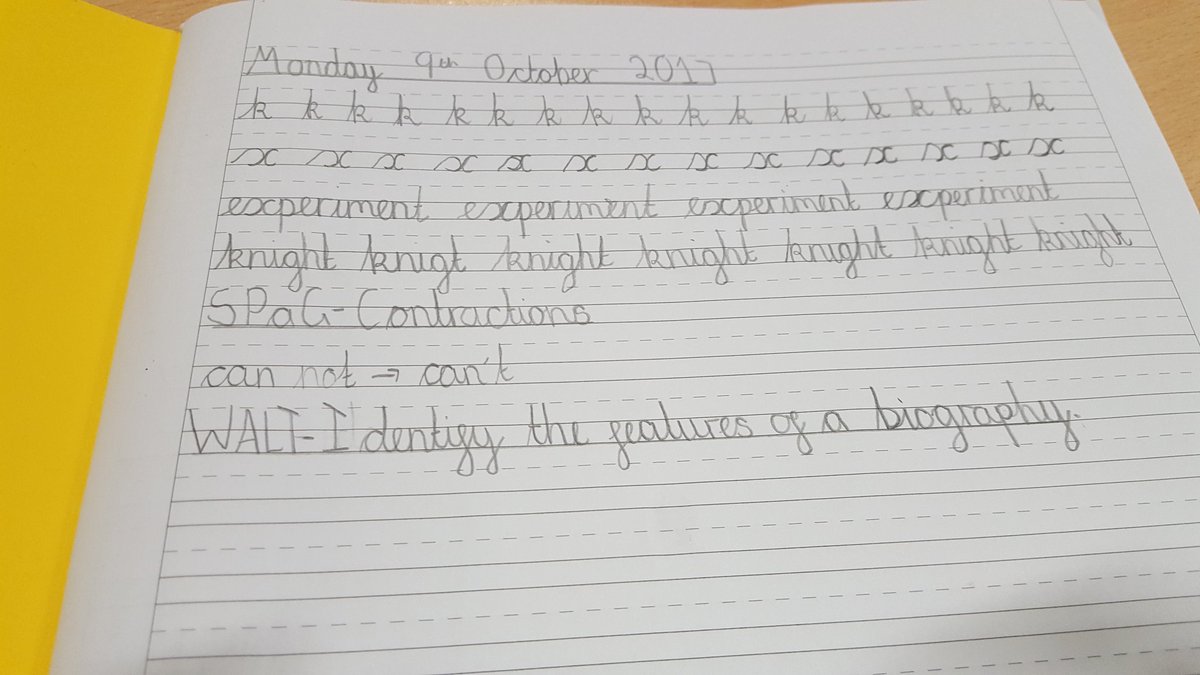 Monday 9th October 2017
k k k k k k k k k k k k k k k k k
x x x x x x x x x x x x x x
experiment experiment experiment experiment
knight knigt knight knight knight knight knight
SPaG-Contractions
can not → can't
WALT-Identify the features of a biography.